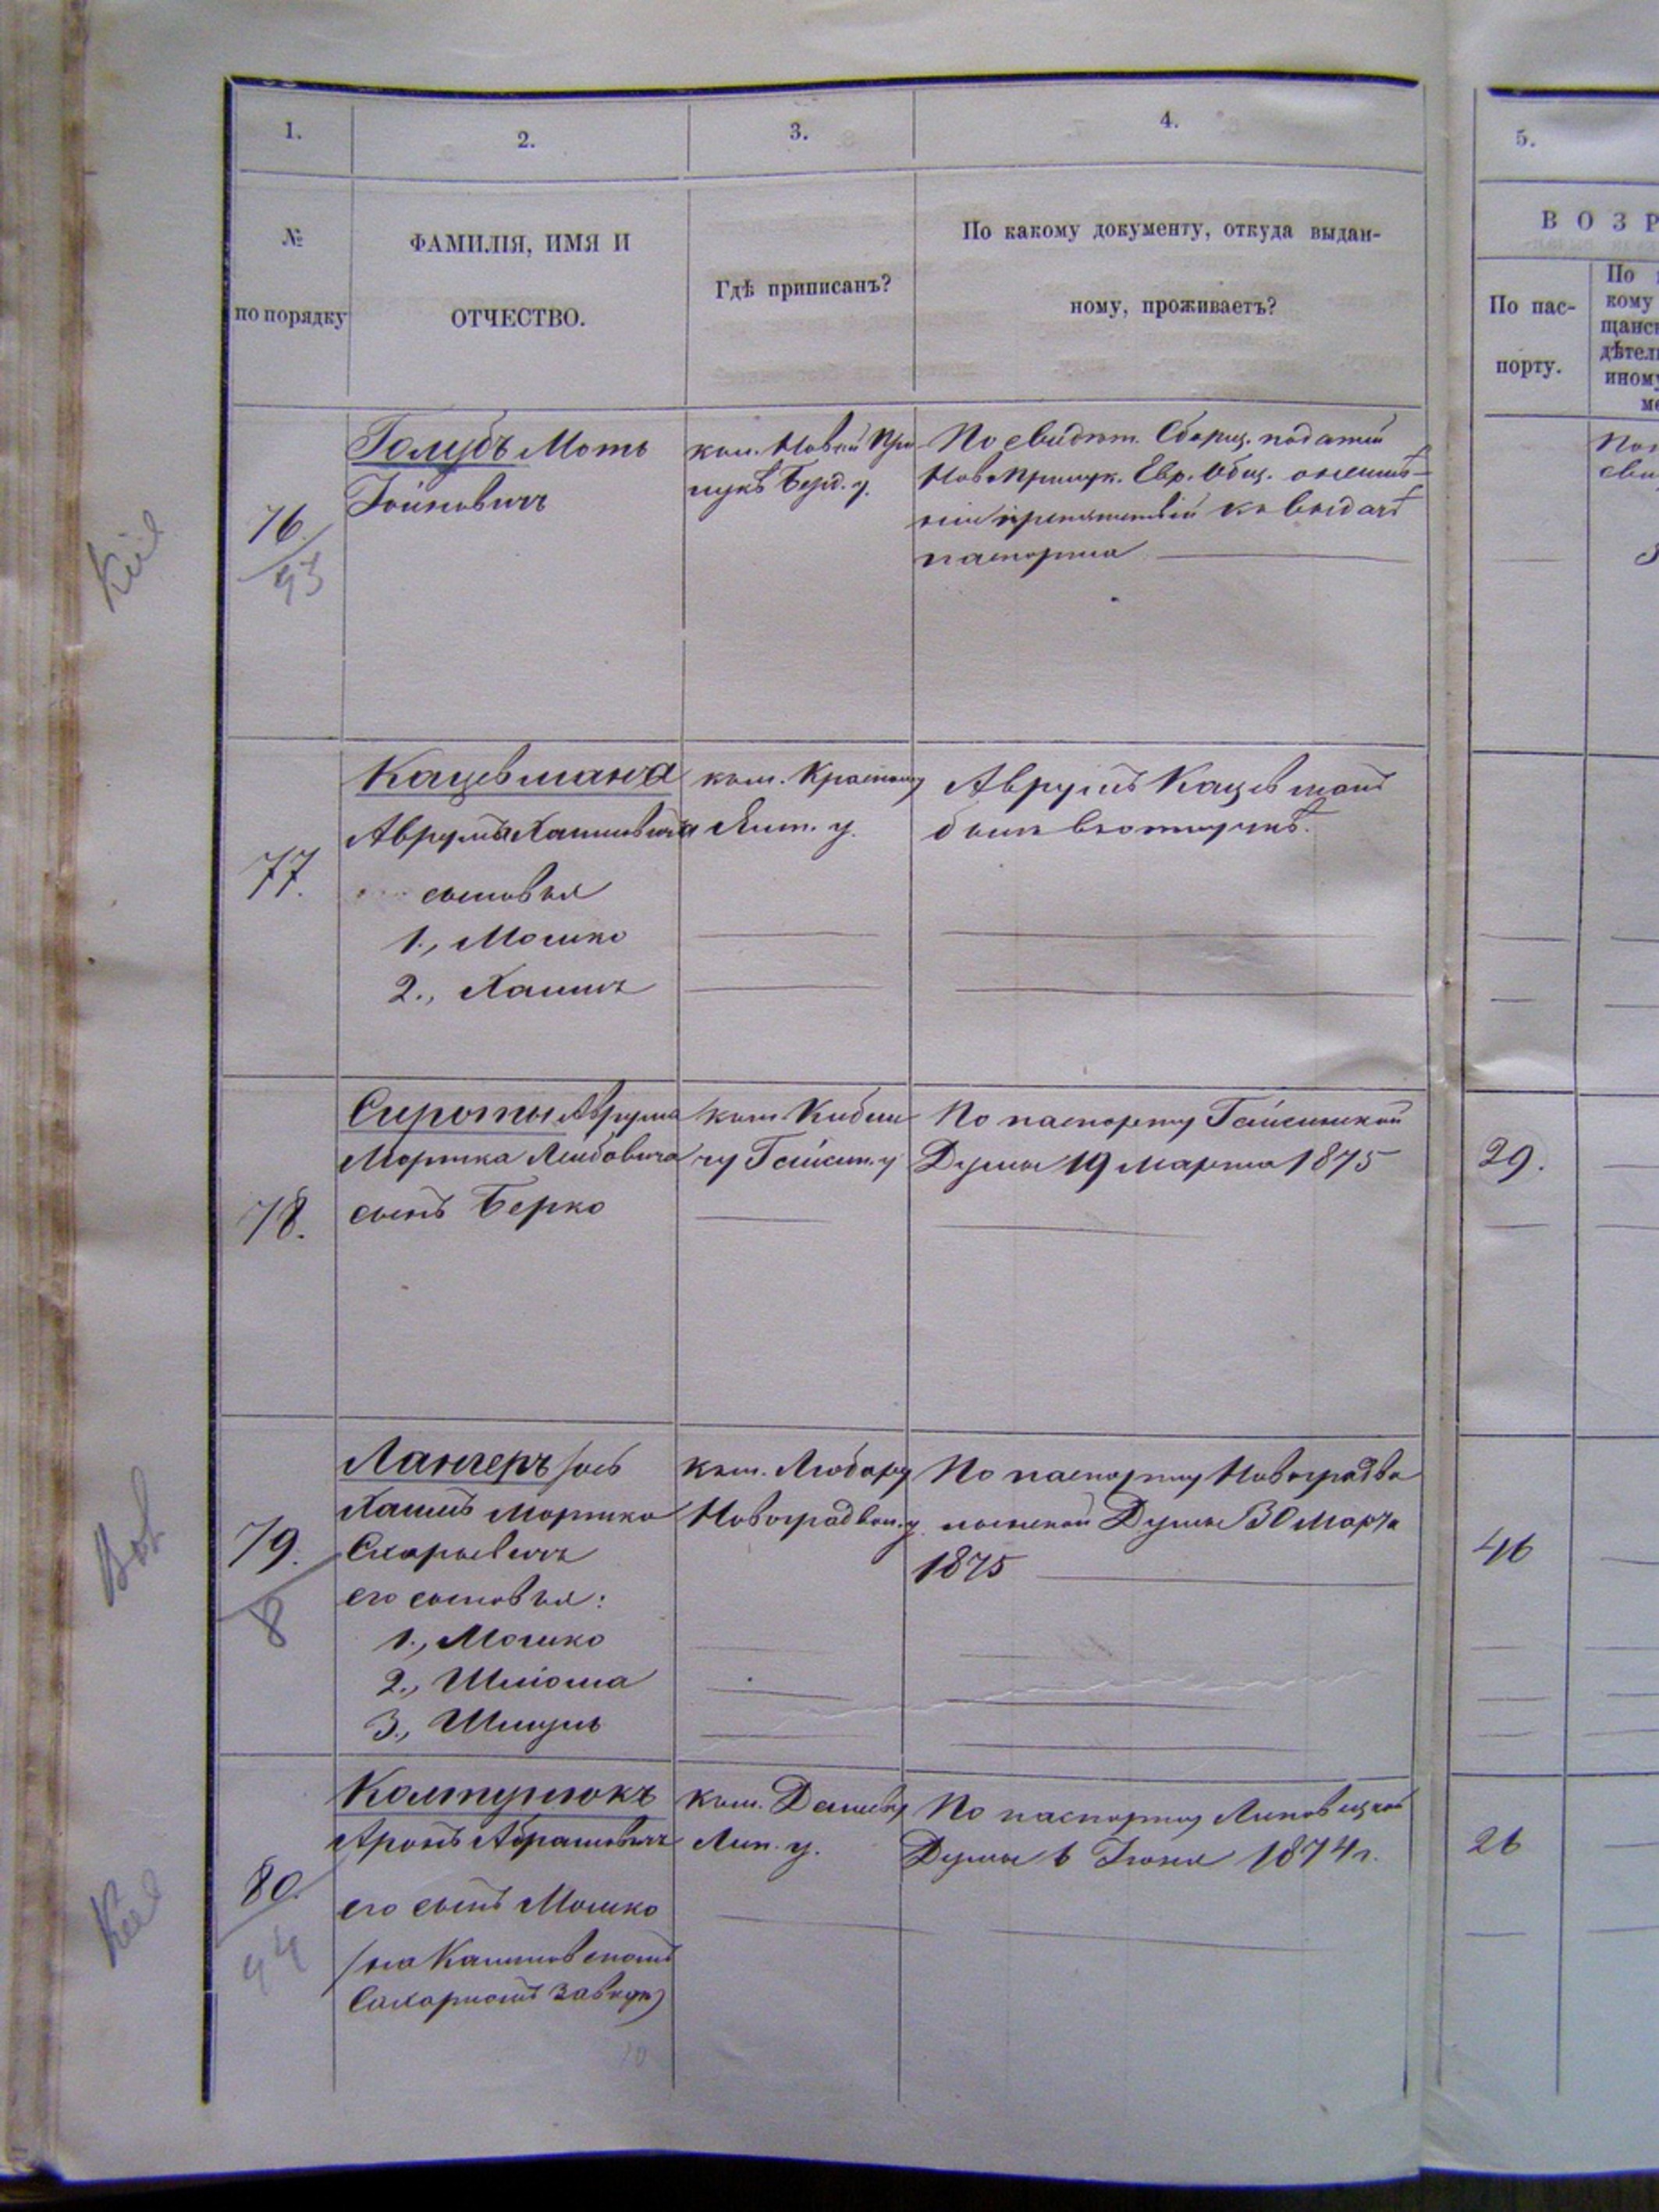 1.
2.
3.
4.
5.
№
по порядку
ФАМИЛІЯ, ИМЯ И
ОТЧЕСТВО.
Гдѣ приписанъ?
По какому документу, откуда выдан-
ному, проживаетъ?
ВОЗР
По пас-
порту.
По
кому
щанск
дѣтел
иному
ме
76.
93
Голубъ Моть
Іойновичъ
къ м. Новой При
лукѣ Берд. у.
По свидѣт. Сборщ. податей
Новоприлук. Евр. Общ. о неимѣ-
ніи препятствій къ выдачѣ
паспорта
77.
Кацевмана
Аврума Хаимовича
сыновья
1., Мошко
2., Хаимъ
Лип. у.
Аврумъ Кацевманъ
былъ въ отлучкѣ.
78.
Сироты Аврума
Мортка Лейбовича
сынъ Берко
къ м. Кибли
чу Гайсин. у
По паспорту Гайсинской
Думы 19 Марта 1875
29.
79.
8
Лангеръ
Хаимъ Мортко
Схарьевичъ
его сыновья:
1., Мошко
2., Шліома
3., Шмуль
къ м. Любару
Новоградвол. у
По паспорту Новоградво
лынской Думы 30 Марта
1875
46
80.
94
Колтунюкъ
Аронъ Абрамовичъ
его сынъ Мошко
(на
Сахарномъ заводѣ)
къ м. Дашеву
Лип. у.
По паспорту Липовецкой
Думы 6 Іюня 1874 г.
26
Кіе
Вол
Кіе